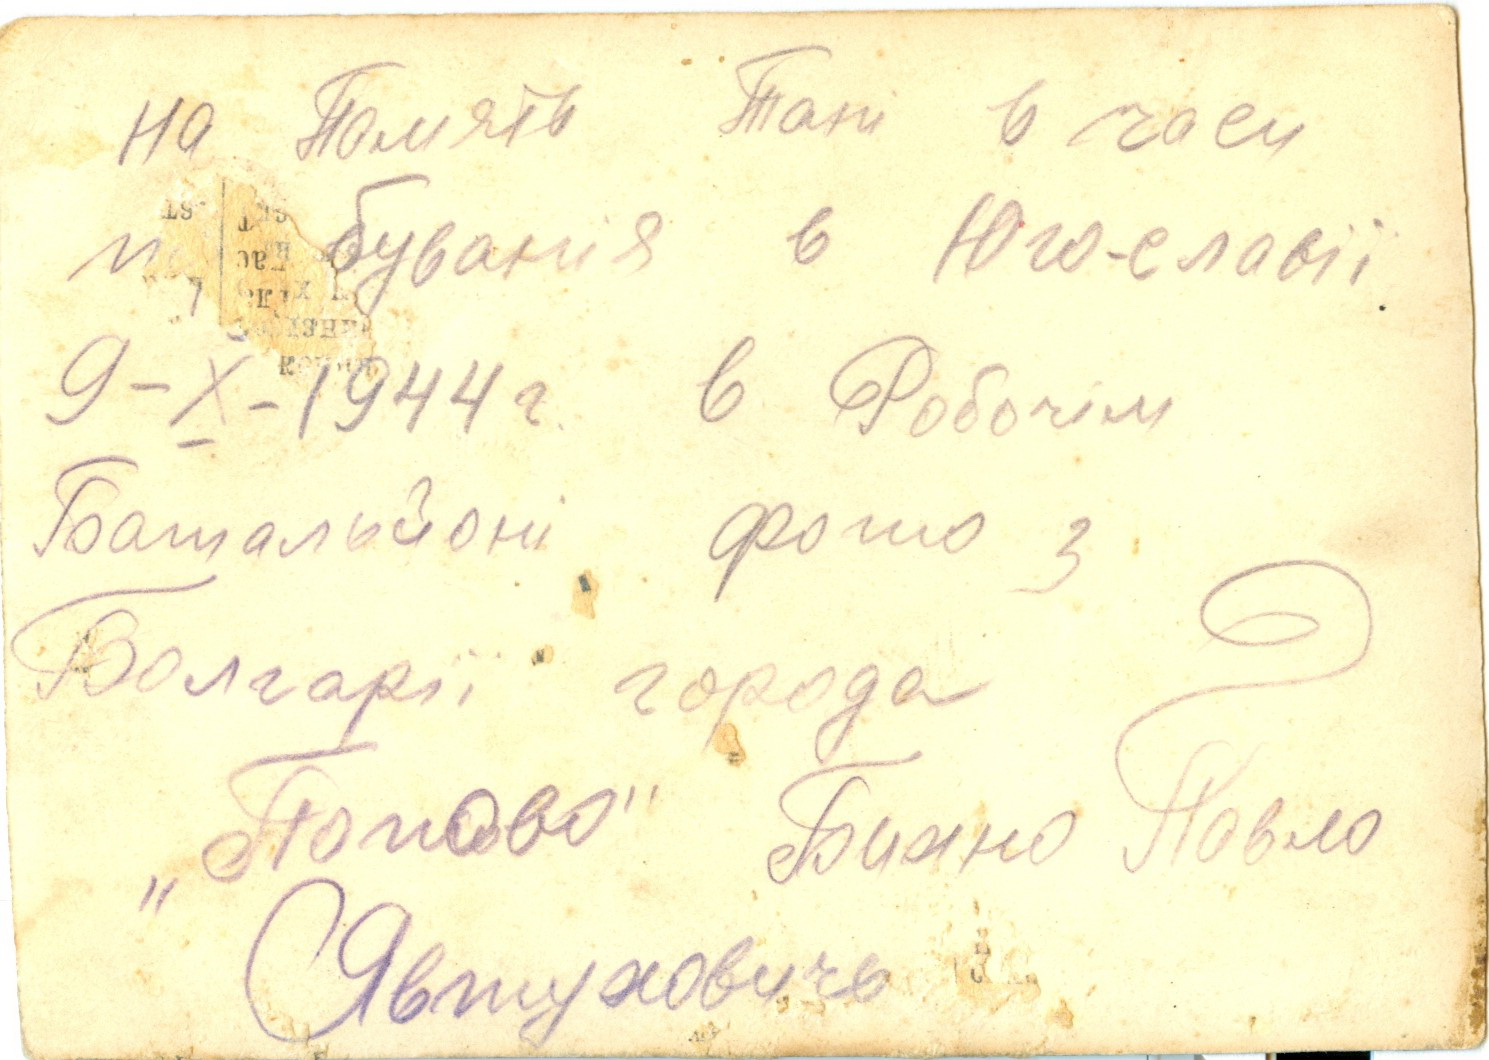 На Помять Тані в часи
бування в Юго-славії
9-X-1944 г. в Робочім
Батальйоні фото з
Болгарії города
„Попово" Бихно Павло
Явтуховичь